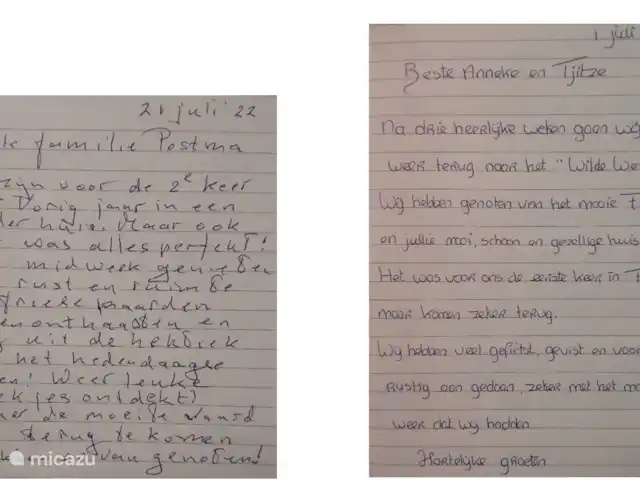 21 juli 22
k familie Postma
zijn voor de 2e keer
Vorig jaar in een
der huis. Maar ook
was alles perfekt!
midweek genieten
rust en ruimte
friese paarden
en onthaasten en
uit de hektiek
het hedendaagse
en! Weer leuke
ekjes ontdekt)
er de moeite waard
terug te komen
van genoten!
micazu
1 juli
Beste Anneke en Tjitze
Na drie heerlijke weken gaan wij
weer terug naar het "Wilde We
Wij hebben genoten van het mooie T
en jullie mooi, schoon en gezellige huis
Het was voor ons de eerste keer in
maar komen zeker terug.
Wij hebben veel gefietst, gevist en voor
rustig aan gedaan, zeker met het mo
weer dat wij hadden
Hartelijke groeten